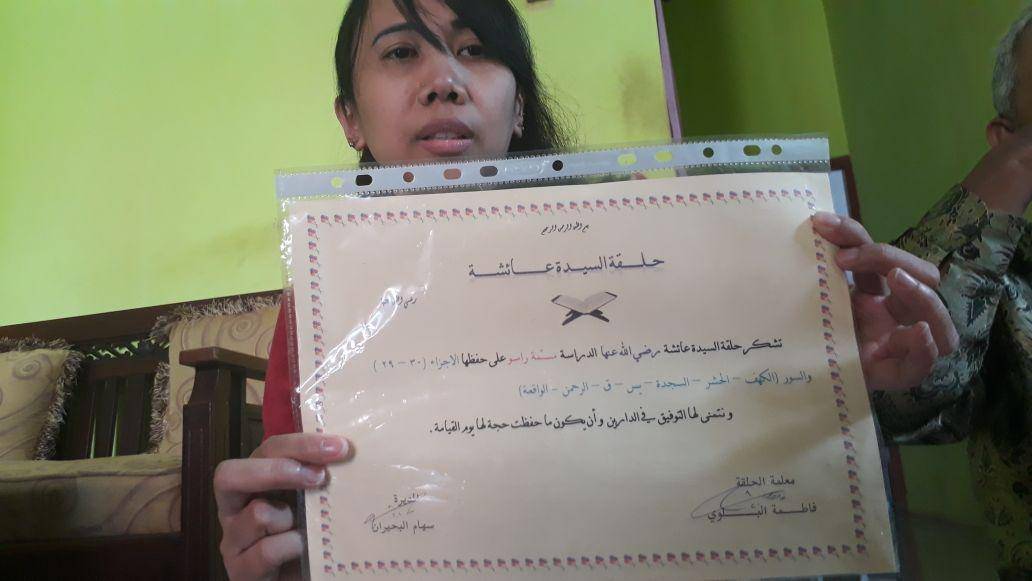 حلقة السيدة عائشة
تشكر حلقة السيدة عائشة رضي الله عنها الدراسة مسمة راسو على حفظها الاجزاء (٣٠ – ٢٩)
والسور (الكهف – الحشر – السجدة – يس – ق – الرحمن – الواقعة)
ونتمنى لها التوفيق في الدارين وأن يكون ما حفظت حجة لها يوم القيامة.
معلمة الحلقة
فاطمة البلوي
المديرة
سهام البحيران